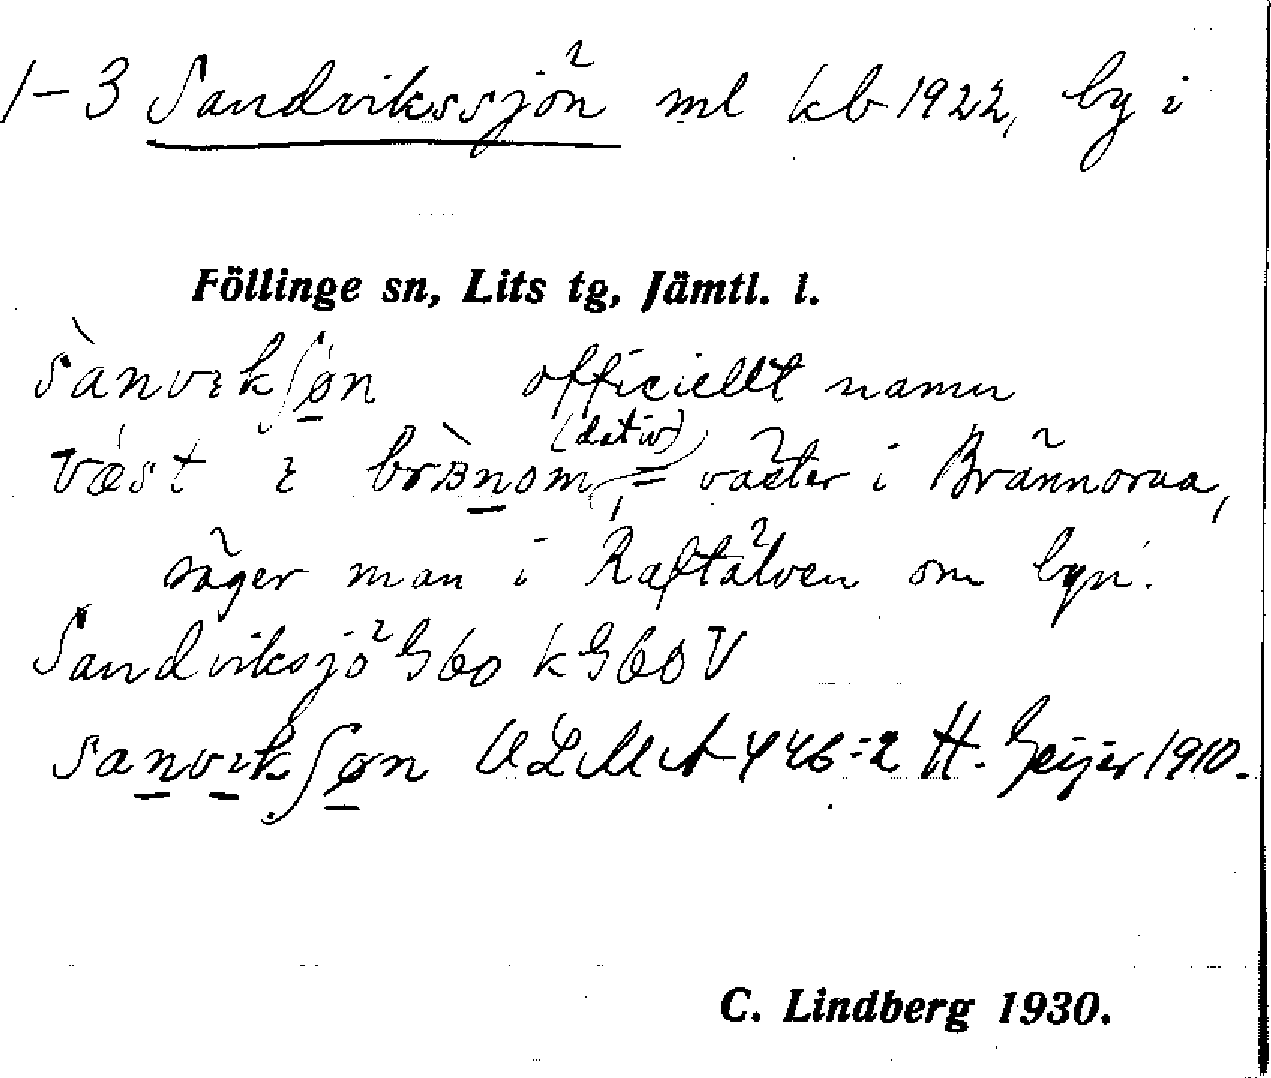 1-3 Sandvikssjön ml kb 1922, by i
Föllinge sn, Lits tg, Jämtl. l.
sànvɪkʃøn officiellt namn
vǽst ɪ brànom, (dativ) = väster i Brännorna,
säger man i Raftälven om byn.
Sandviksjö G60 kG60V
sanvɪkʃøn ULMA 446:2 H. Geijer 1910.
C. Lindberg 1930.